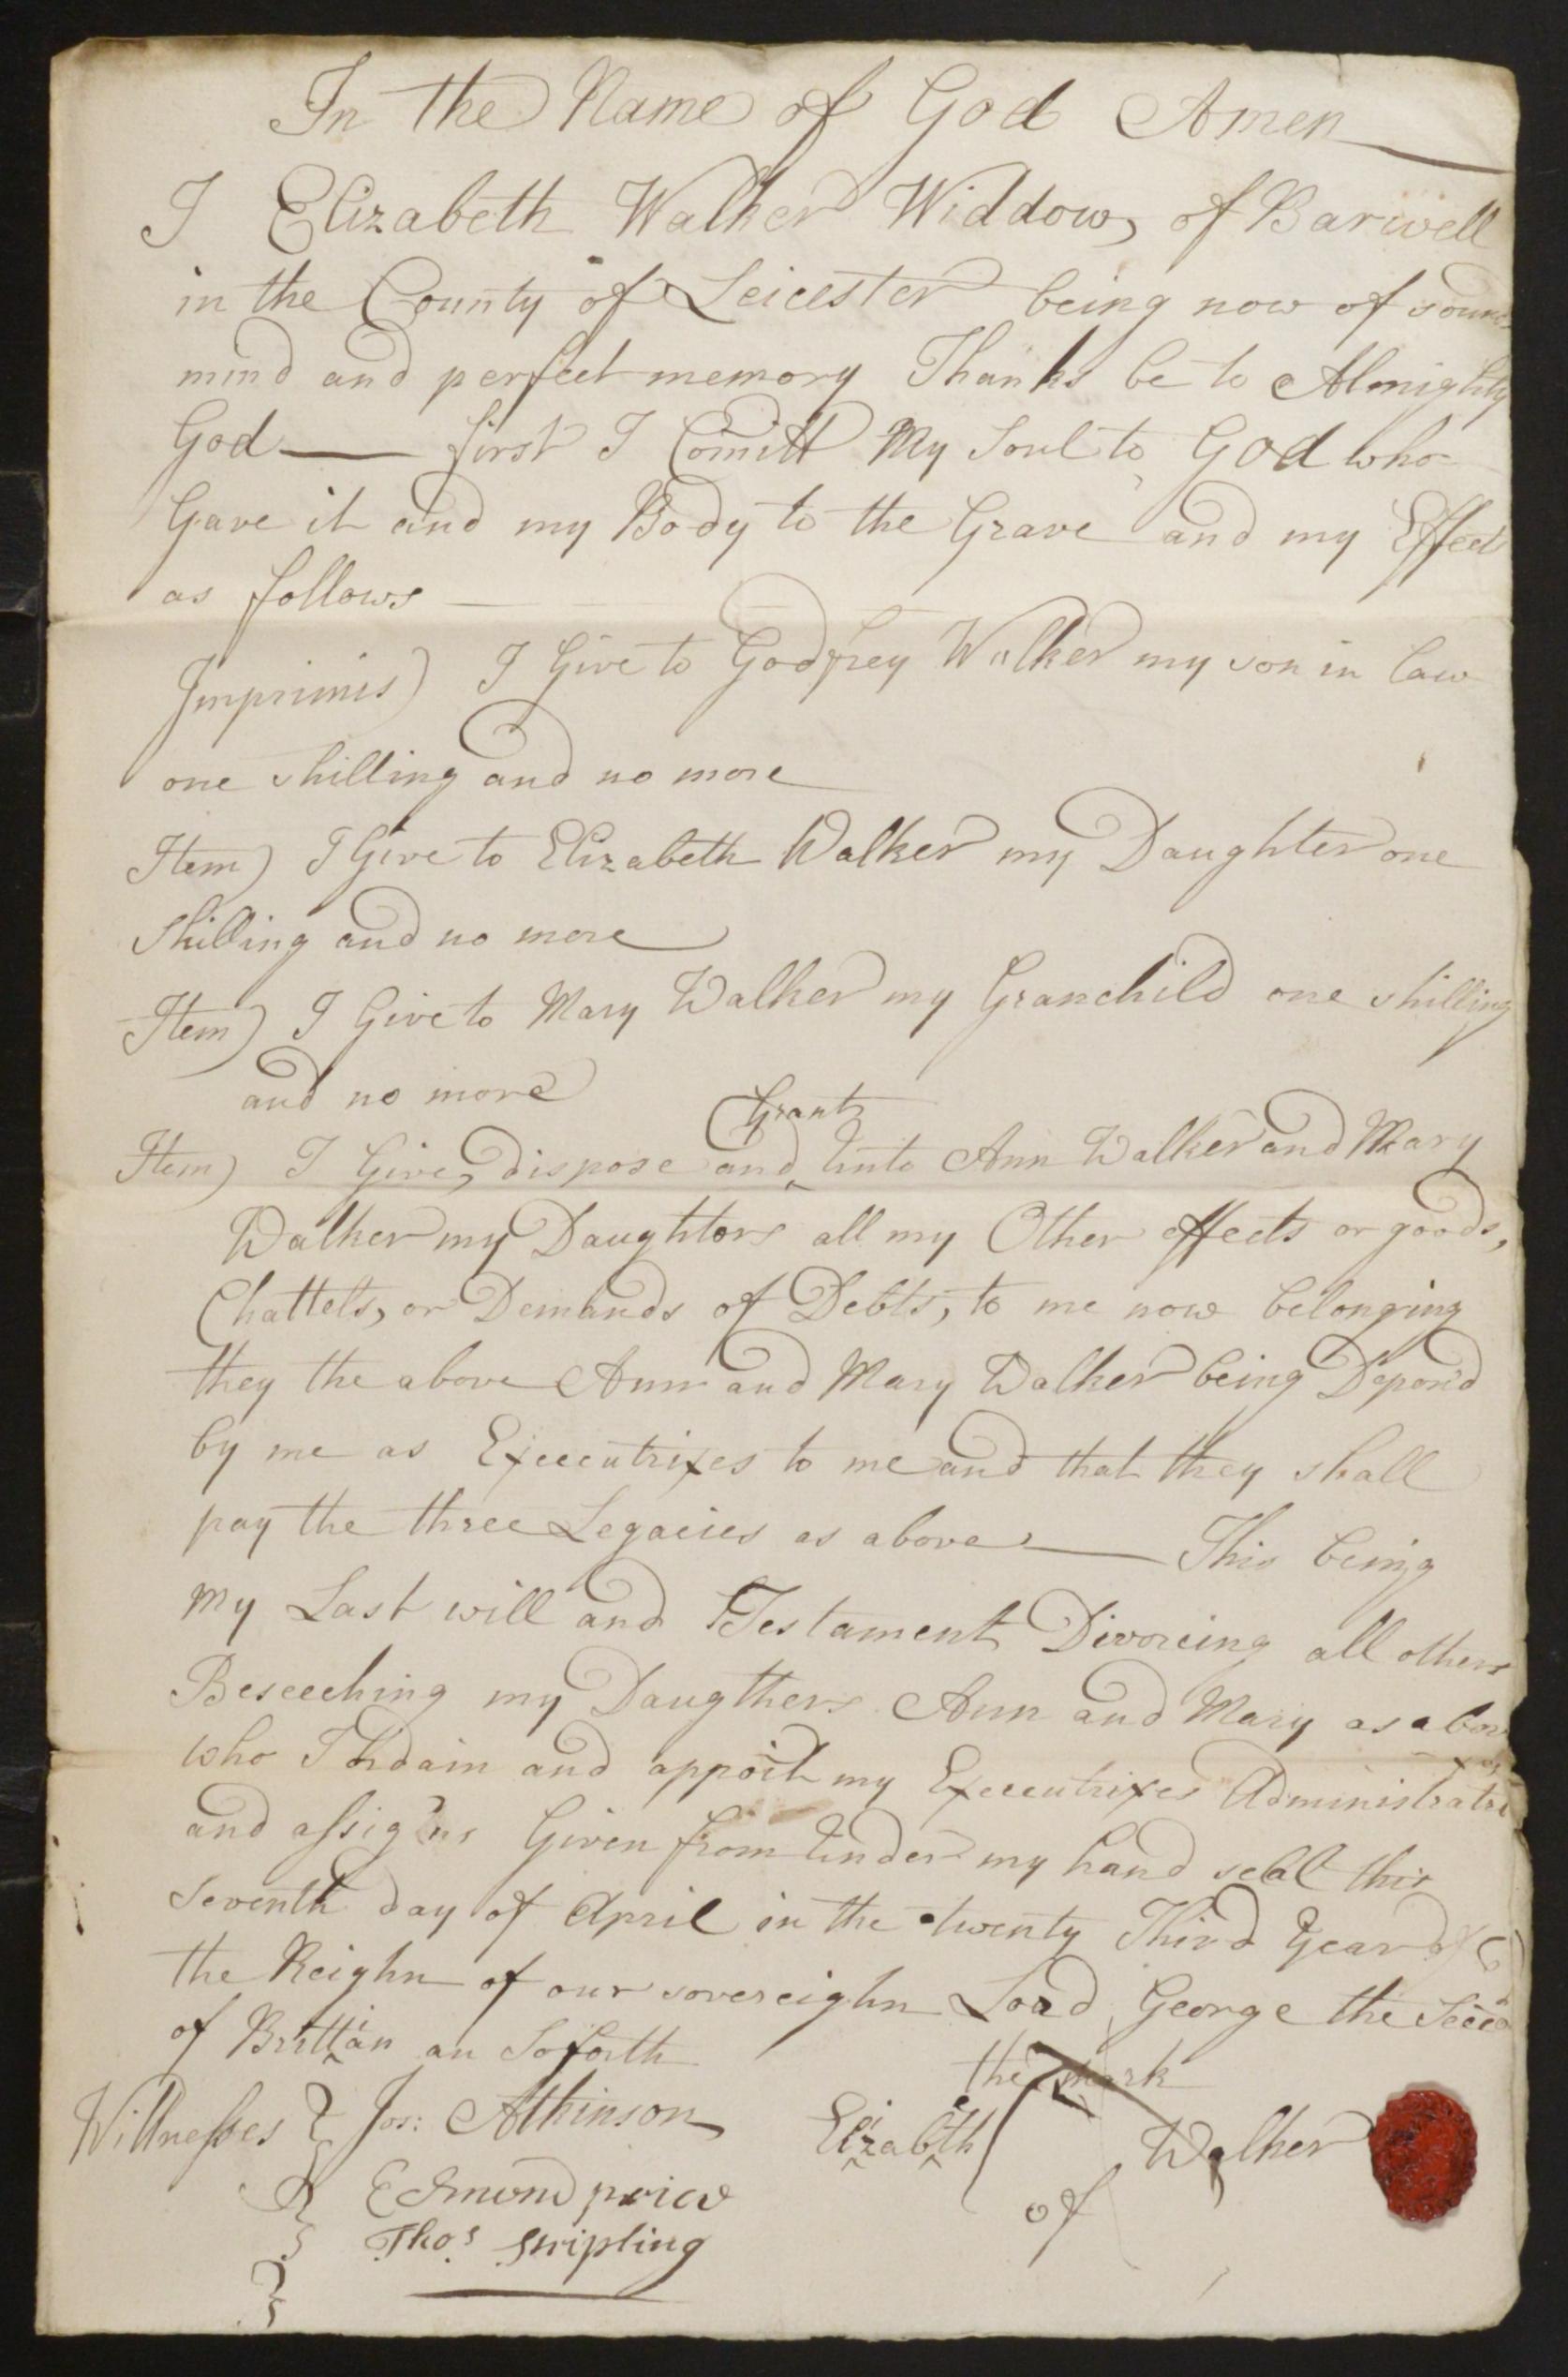 In the Name of God Amen
I Elizabeth Walker Widdow, of Barwell
in the County of Leicester being now of sound
mind and perfect memory Thanks be to Almighty
God — first I Comitt My Soul to God who
Gave it and my Body to the Grave and my Effects
as follows —
Imprimis) I Give to Godfrey Walker my son in law
one shilling and no more
Item) I Give to Elizabeth Walker my Daughter one
Shilling and no more
Item) I Give to Mary Walker my Granchild one shilling
and no more
Grant
Item) I Give, dispose and ‸ Unto Ann Walker and Mary
Walker my Daughtors all my Other effects or goods,
Chattels, or Demands of Debts, to me now belonging
they the above Ann and Mary Walker being Depon'd
by me as Execcutrixes to me and that they shall
pay the three Legacies as above — This being
My Last will and Testament Divorcing all others
Beseeching my Daugthers Ann and Mary as above
who I Ordain and appoit my Execcutrixes Administratrixes
and assigns Given from Under my hand seal this
Seventh day of April in the twenty Third Year of
the Reighn of our sovereighn Lord George the Second
of Brittan an Soforth
the mark
Wittnesses Jos: Atkinson Elizabeth Walker
of
Edmond price
Thos Stripling